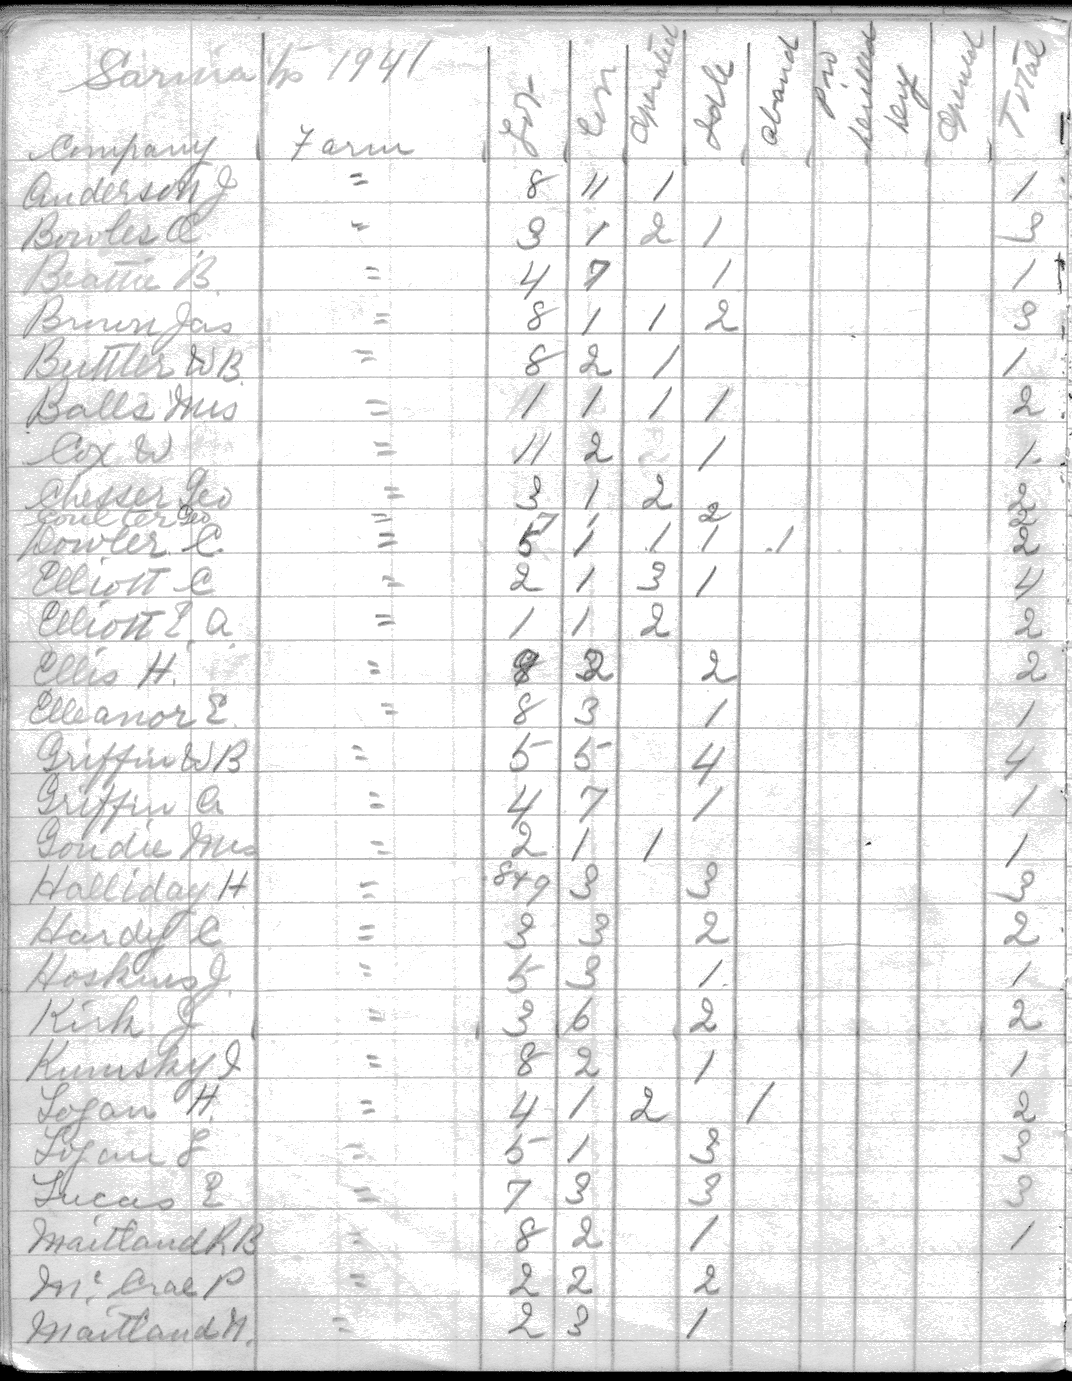 Sarnia Tp 1941
Company Farm Lot Con Operated Idle Aband Pro drilled dry Opened Total
Anderson J " 8 11 1 1
Bowles C. " 3 1 2 1 3
Beattie B. " 4 7 1 1
Brown Jas " 8 1 1 2 3
Buttler W B. " 8 2 1 1
Balls Mrs " 1 1 1 1 2
Cox W " 11 2 1 1
Chesser Geo " 3 1 2 2
Coulter Geo " 1 2 2
Dowler C. " 5 1 1 1 1 2
Elliott C " 2 1 3 1 4
Elliott E. A. " 1 1 2 2
Ellis H. " 2 2
Elleanor E. " 8 3 1 1
Griffin W B " 5 5 4 4
Griffin A " 4 7 1 1
Goudie Mrs " 2 1 1 1
Halliday H " 8+9 3 3 3
Hardy C " 3 3 2 2
Hoskins J. " 5 3 1 1
Kirk J " 3 6 2 2
Kumsky J " 8 2 1 1
Logan H. " 4 1 2 1 2
Logan L " 5 1 3 3
Lucas E " 7 3 3 3
Maitland R B " 8 2 1 1
Mc Crae P " 2 2 2
Maitland N. " 2 3 1